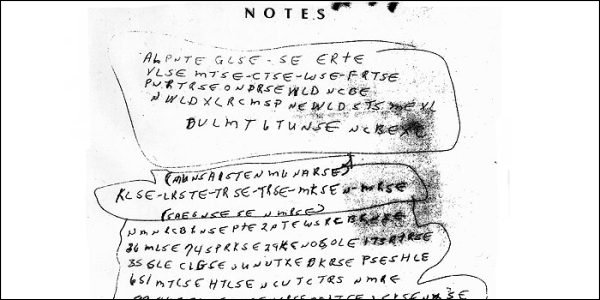 NOTES
ALPNTE GLSE - SE ERTE
VLSE MTSE-CTSE-WSE-FRTSE
PNRTRSE ONDRSE WLD NCBE
NWLDXLRCMSP NEWLDSTS MEXL
DULMT6TUNSE NCBEXC
(MUNSARSTEN MUNARSE)
KLSE-LRSTE-TRSE-TRSE-MKSEN-MRSE
(SAEGNSE SE NMRSE)
NMNRCBRNSE PTE2PTEWSRCBRNSE
36 MLSE 74SPRKSE 29KENOSOLE 173RTRSE
35 GLE CLGSE UNUTXE DKRSE PSESHLE
651 MTLSE HTLSE NCUTCTRS NMRE